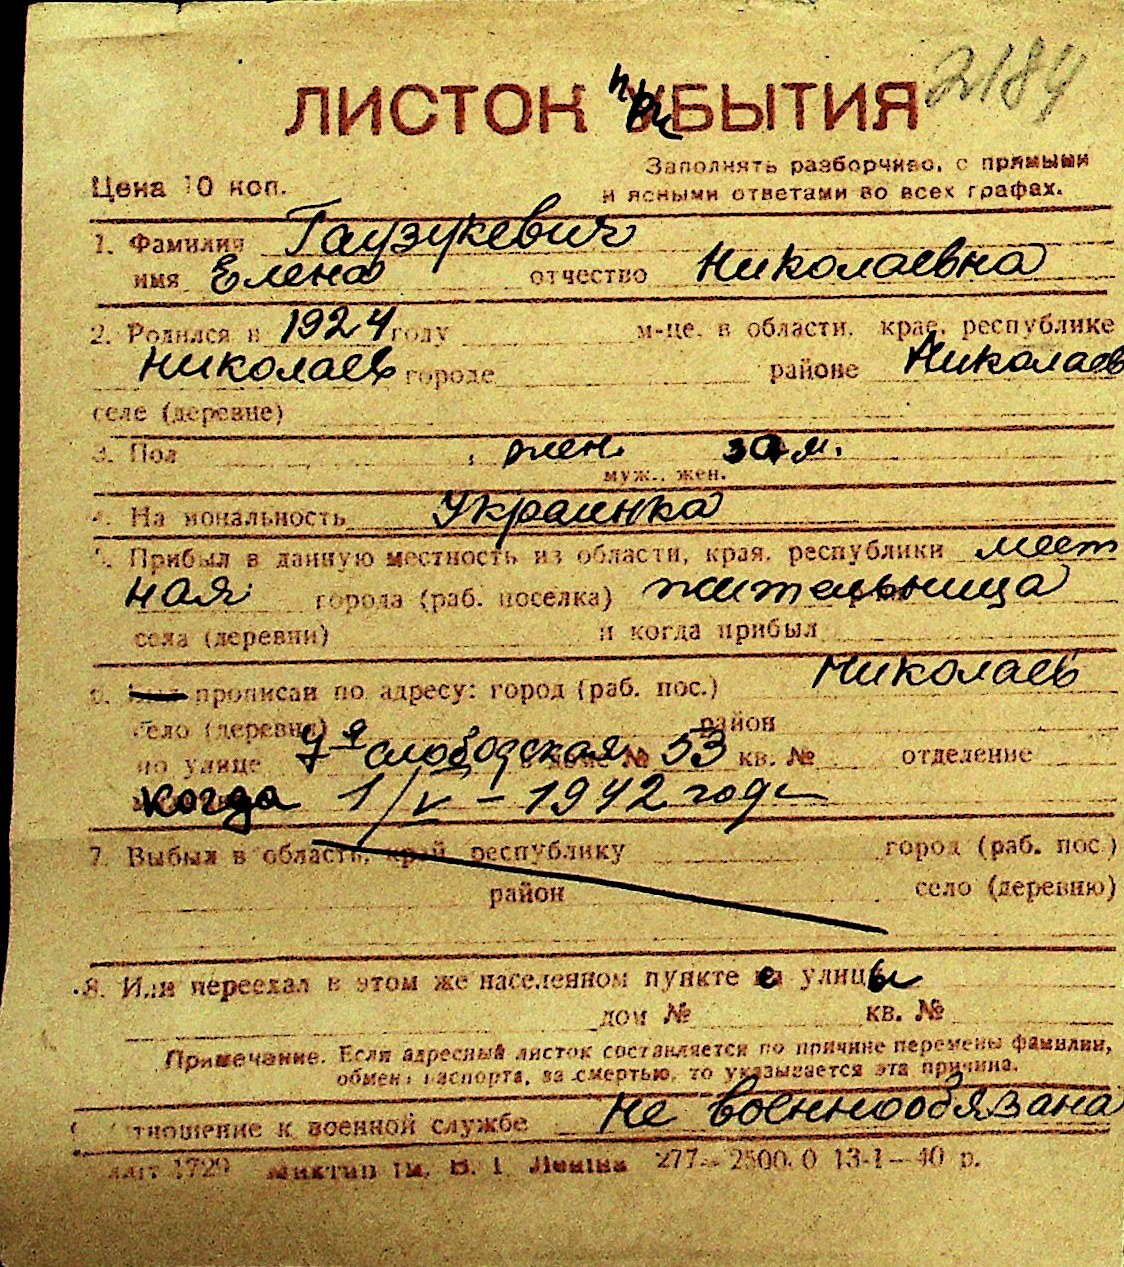 2184
ЛИСТОК прибЫТИЯ
Заполнять разборчиво, с прямыми
Цена 10 коп. и ясными ответами во всех графах.
1. Фамилия Гаузукевич
имя Елена отчество Николаевна
2. Родился в 1924 году м-це, в области, крае, республике
Николаев городе районе Николаев
селе (деревне)
3. Пол , жен. зам.
муж., жен.
На иональность Украинка
Прибыл в данную местность из области, края, республики мест
ная города (раб. поселка) жительница
села (деревни) и когда прибыл
прописан по адресу: город (раб. пос.) Николаев
село (деревня) район
по улице 7я слободская № 53 кв. № отделение
когда 1/V – 1942 года
7. Выбыл в область, край, республику город (раб. пос.)
район село (деревню)
8. Или переехал в этом же населенном пункте с улицы
дом № кв. №
Примечание. Если адресный листок составляется по причине перемены фамилии,
обмена паспорта, за смертью, то указывается эта причина.
тношение к военной службе не военнообязана
1729 277 – 2500.0 13-1–40 р.